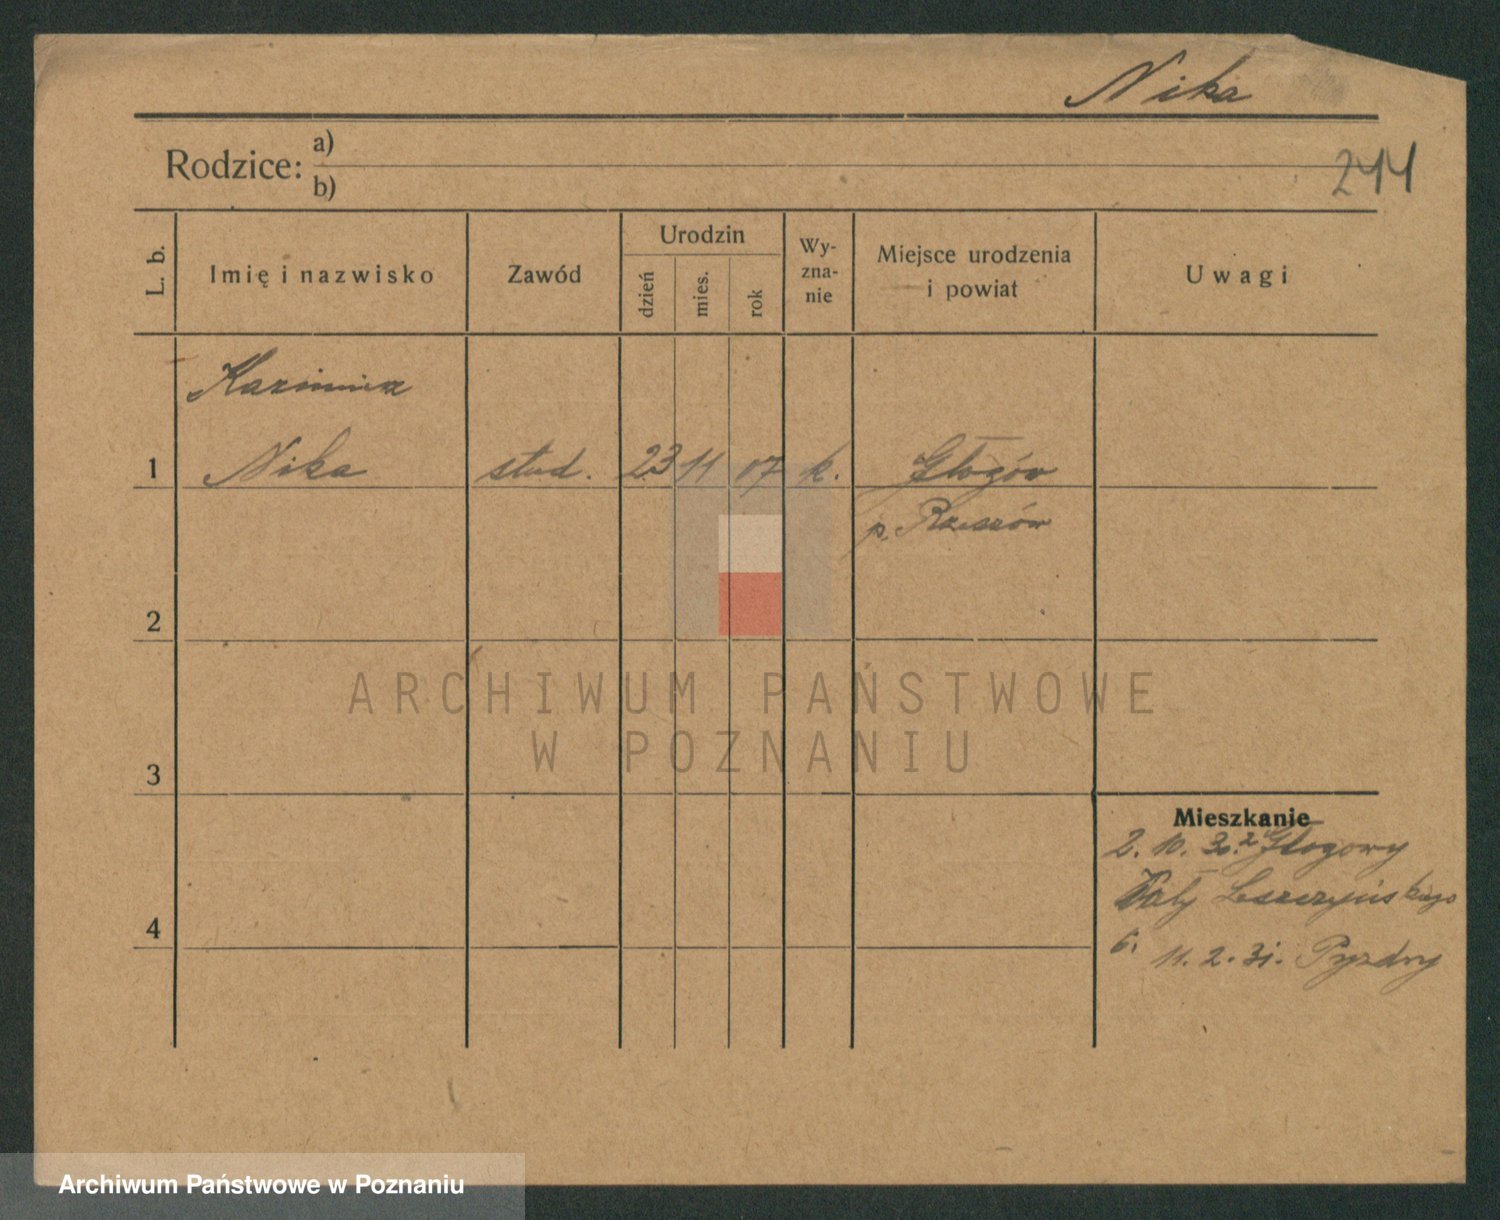 Nika
Rodzice: a)
b)
244
L. b.
Imię i nazwisko
Zawód
Urodzin
dzień
mies.
rok
Wy-
zna-
nie
Miejsce urodzenia
i powiat
Uwagi
Kazimierz
1 Nika stud. 23 11 07 k. Głogów
p. Rzeszów
2
3
4
Mieszkanie
2. 10. 30. z Głogowy
Wały Leszczyńskiego
6. 11. 2. 31. Pyzdry
ARCHIWUM PAŃSTWOWE
W POZNANIU
Archiwum Państwowe w Poznaniu